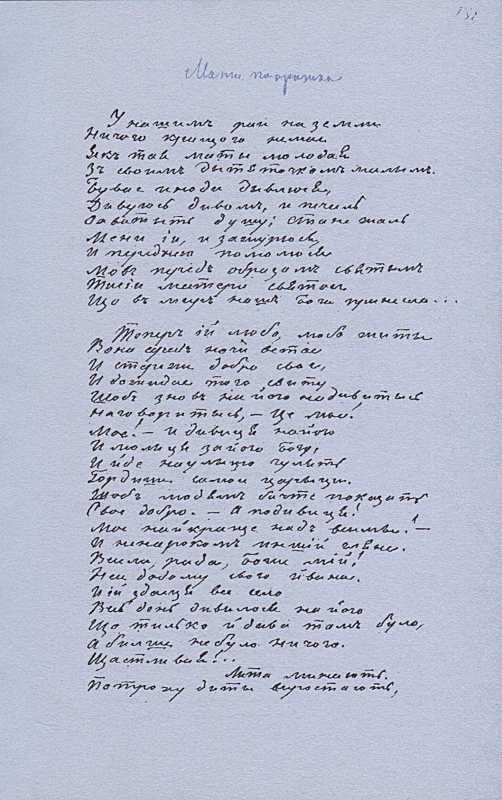 151
Мати покритка
У нашимъ раи на земли
Ничого кращого немае
Якъ тая маты молодая
Зъ своимъ дытяточкомъ малымъ.
Бувае иноди дывлюся,
Дивуюсь дивомъ, и печаль
Охватыть душу; стане жаль
Мени іи, и зажурюся,
И передъ нею помолюся
Мовъ передъ образомъ святымъ
Тиеи матери святои
Що въ миръ нашъ Бога принесла...
Теперъ ій любо, любо жыты
Вона середъ ночи встае
И стереже добро свое,
И дожидае того свиту
Щобъ зновъ на його надивытысь
Наговорытысь, – Це мое!
Мое! – и дивыця на його
И молиця за його Богу,
И йде на улыцю гулять
Гордише самои царыци.
Щобъ людямъ бачте показать
Свое добро. – А подивиця!
Мое найкраще надъ всимы! –
И ненарокомъ инший гляне.
Весела, рада, Боже мій!
Несе додому свого йвана.
И ій здаеця все село
Весь день дивилося на його
Що тилько й дива тамъ було,
А бильше не було ничого.
Щасливая!..
Лита минають.
Потроху диты выростають,